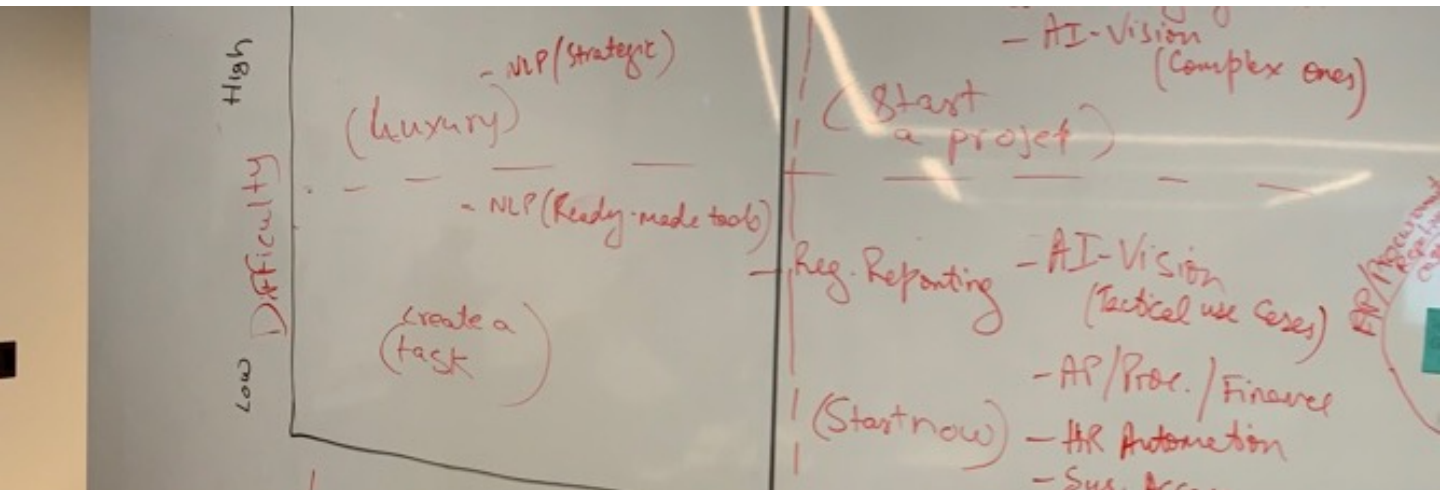 High
Difficulty
Low
- NLP (Strategic)
(Luxury)
- NLP (Ready-made tools)
(create a
task)
- AI-Vision
(Complex ones)
(Start
a projet)
- Reg. Reporting
- AI-Vision
(Tactical use Cases)
- AP/Proc./Finance
(Start now)
- HR Automation
- Sys.
AP/